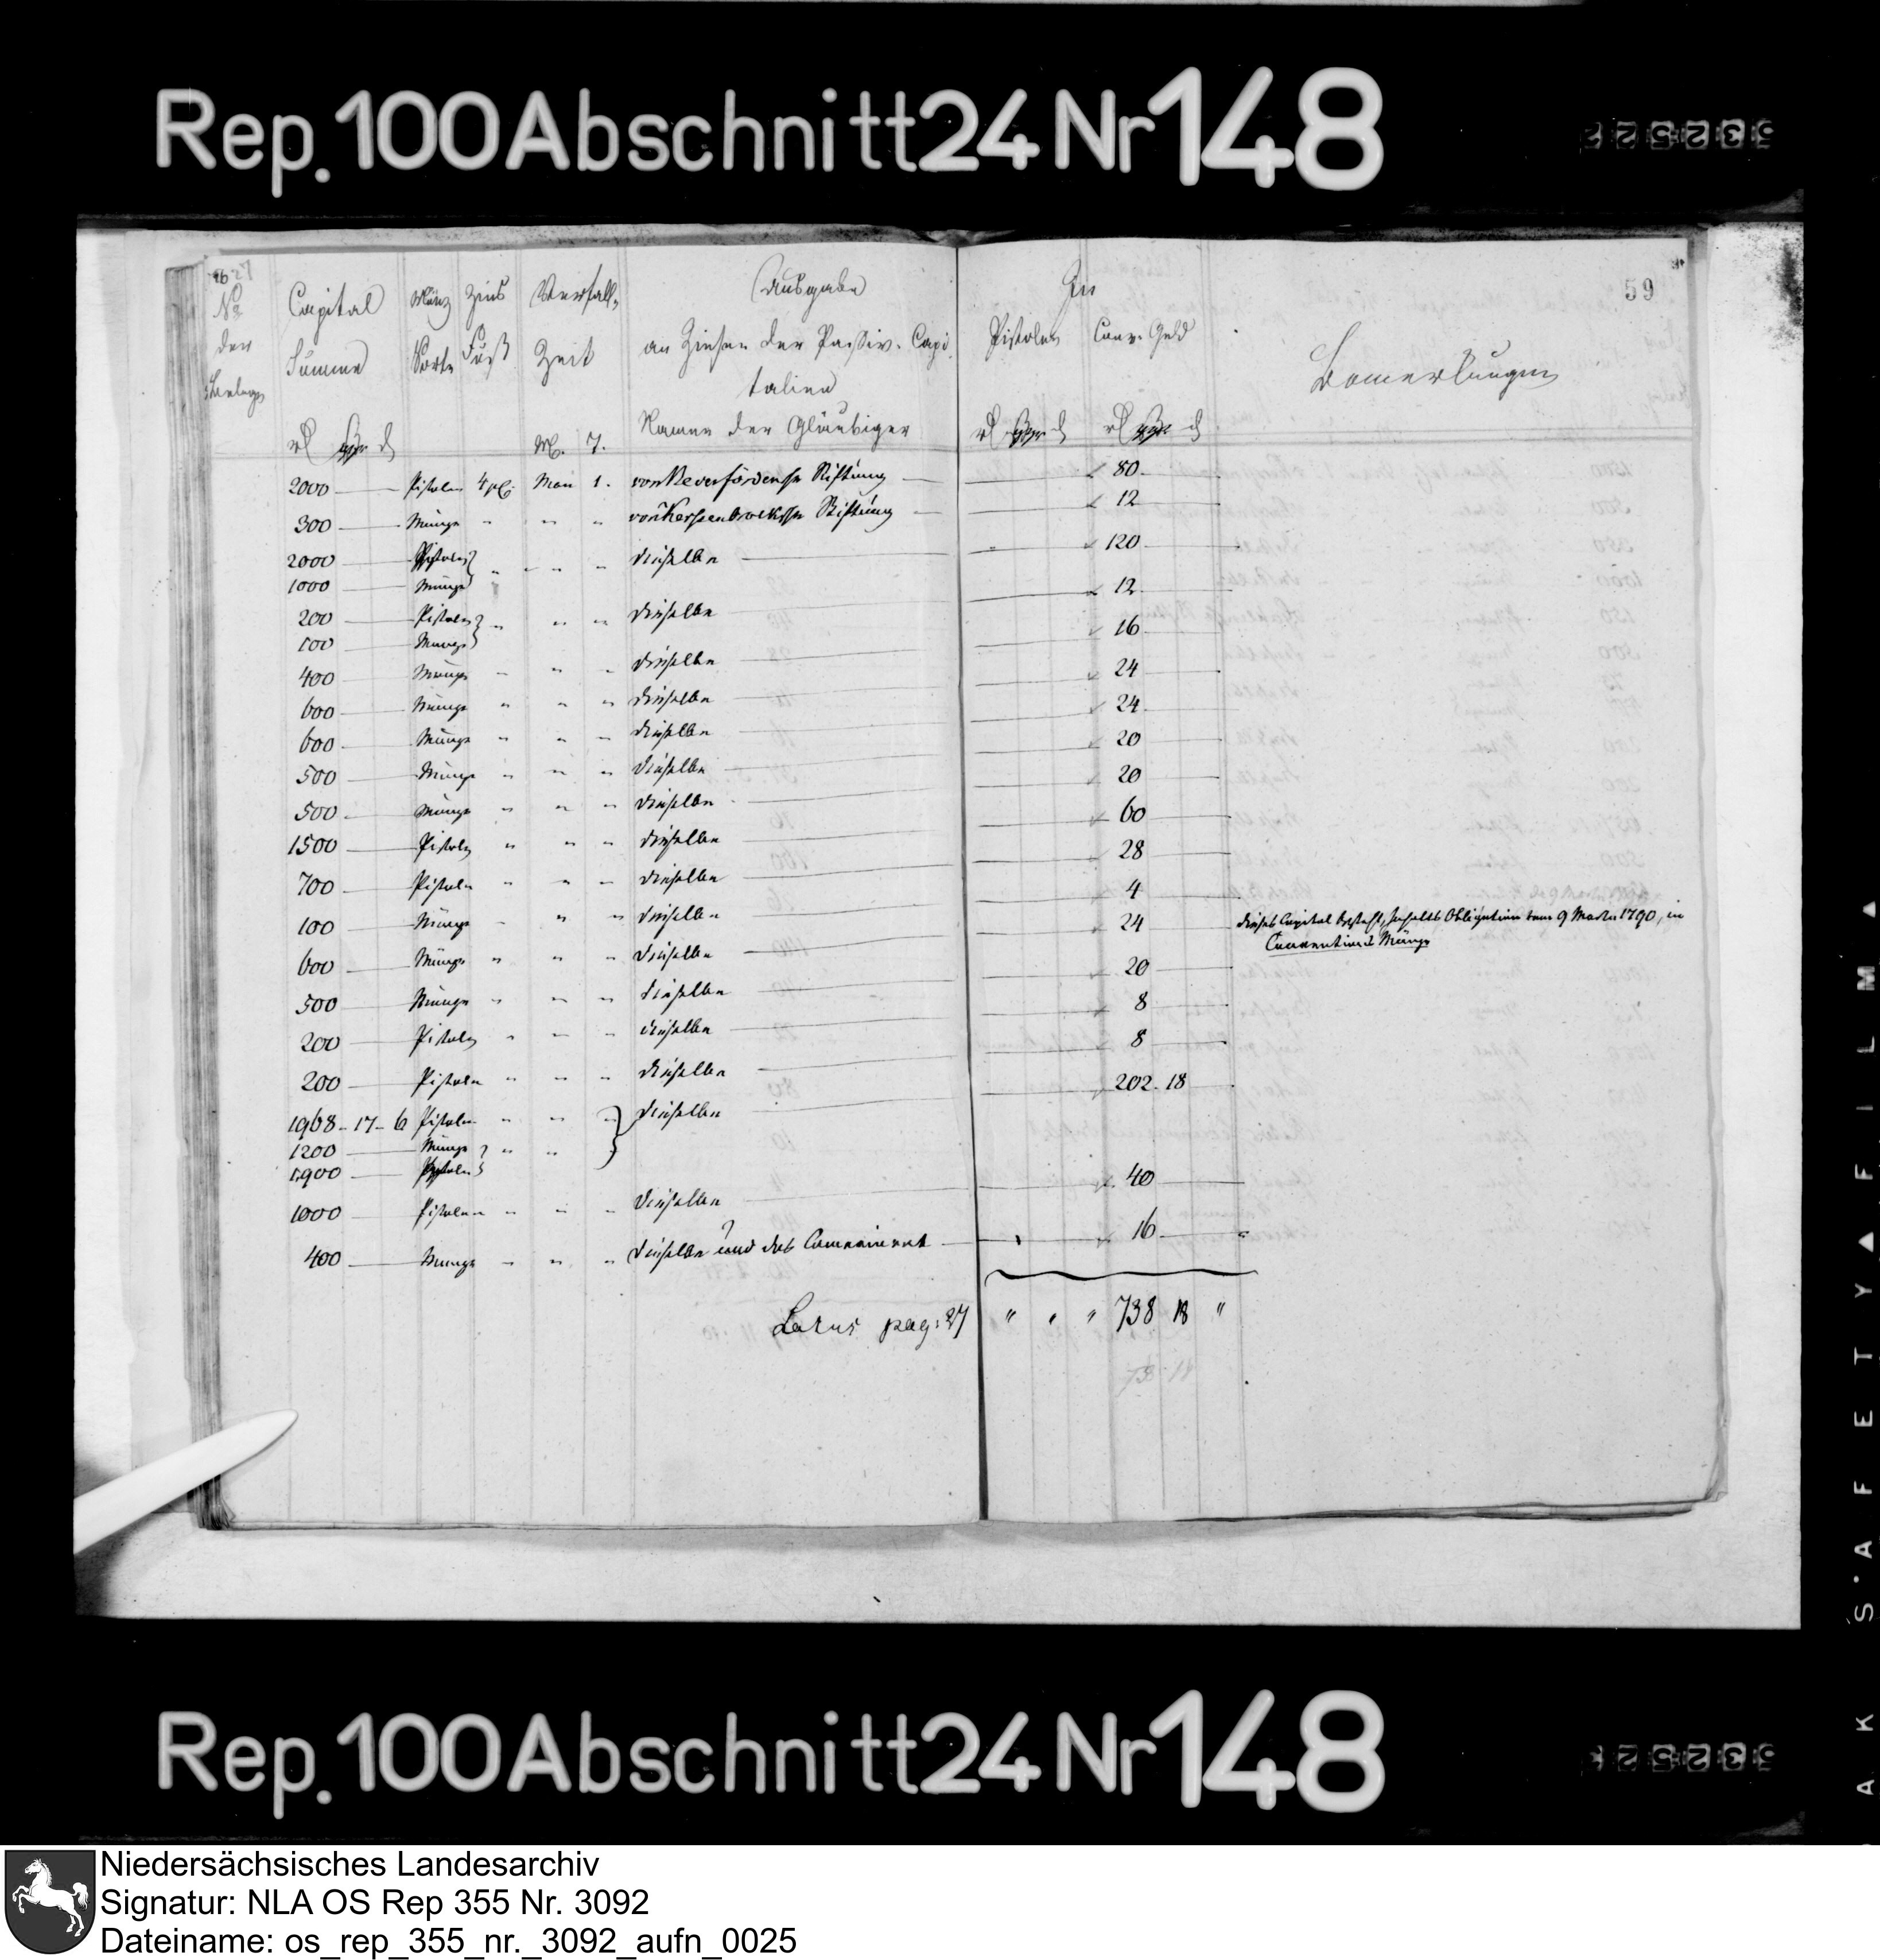 Rep. 100 Abschnitt 24 Nr 148
27
59
No der Beelage
Capital Summe
Münz Sorte
Zins Fuß
Verfall-Zeit
Ausgabe
an Zinsen der Passiv-Capi
talien
Namen der Gläubiger
In
Pistolen
Conv. Geld
Bemerkungen
M. T.
2000 Pistolen 4 pC Mai 1. von Kerssenbrocksche Stiftung 80
300 Münze " " " von Kerssenbrocksche Stiftung 12
2000 Pistolen } " " " dieselben 120
1000 Münze
200 Pistolen } " " " dieselben 12
100 Münze
400 Münze " " " dieselben 16
600 Münze " " " dieselben 24
600 Münze " " " dieselben 24
500 Münze " " " dieselben 20
500 Münze " " " dieselben 20
1500 Pistolen " " " dieselben 60
700 Pistolen " " " dieselben 28
100 Münze " " " dieselben 4
600 Münze " " " dieselben 24 dieses Capital besteht, Inhalts Obligation vom 9 Martii 1790, in
Conventions Münze
500 Münze " " " dieselben 20
200 Pistolen " " " dieselben 8
200 Pistolen " " " dieselben 8
1968 - 17 - 6 Pistolen " " " } dieselben 202. 18
1200 Münze } " "
1900 Pistolen
1000 Pistolen " " " dieselben 40
400 Münze " " " dieselben und das 16
Latus pag: 27 " " " 738 18 "
738 18
Rep. 100 Abschnitt 24 Nr 148
Niedersächsisches Landesarchiv
Signatur: NLA OS Rep 355 Nr. 3092
Dateiname: os_rep_355_nr._3092_aufn_0025